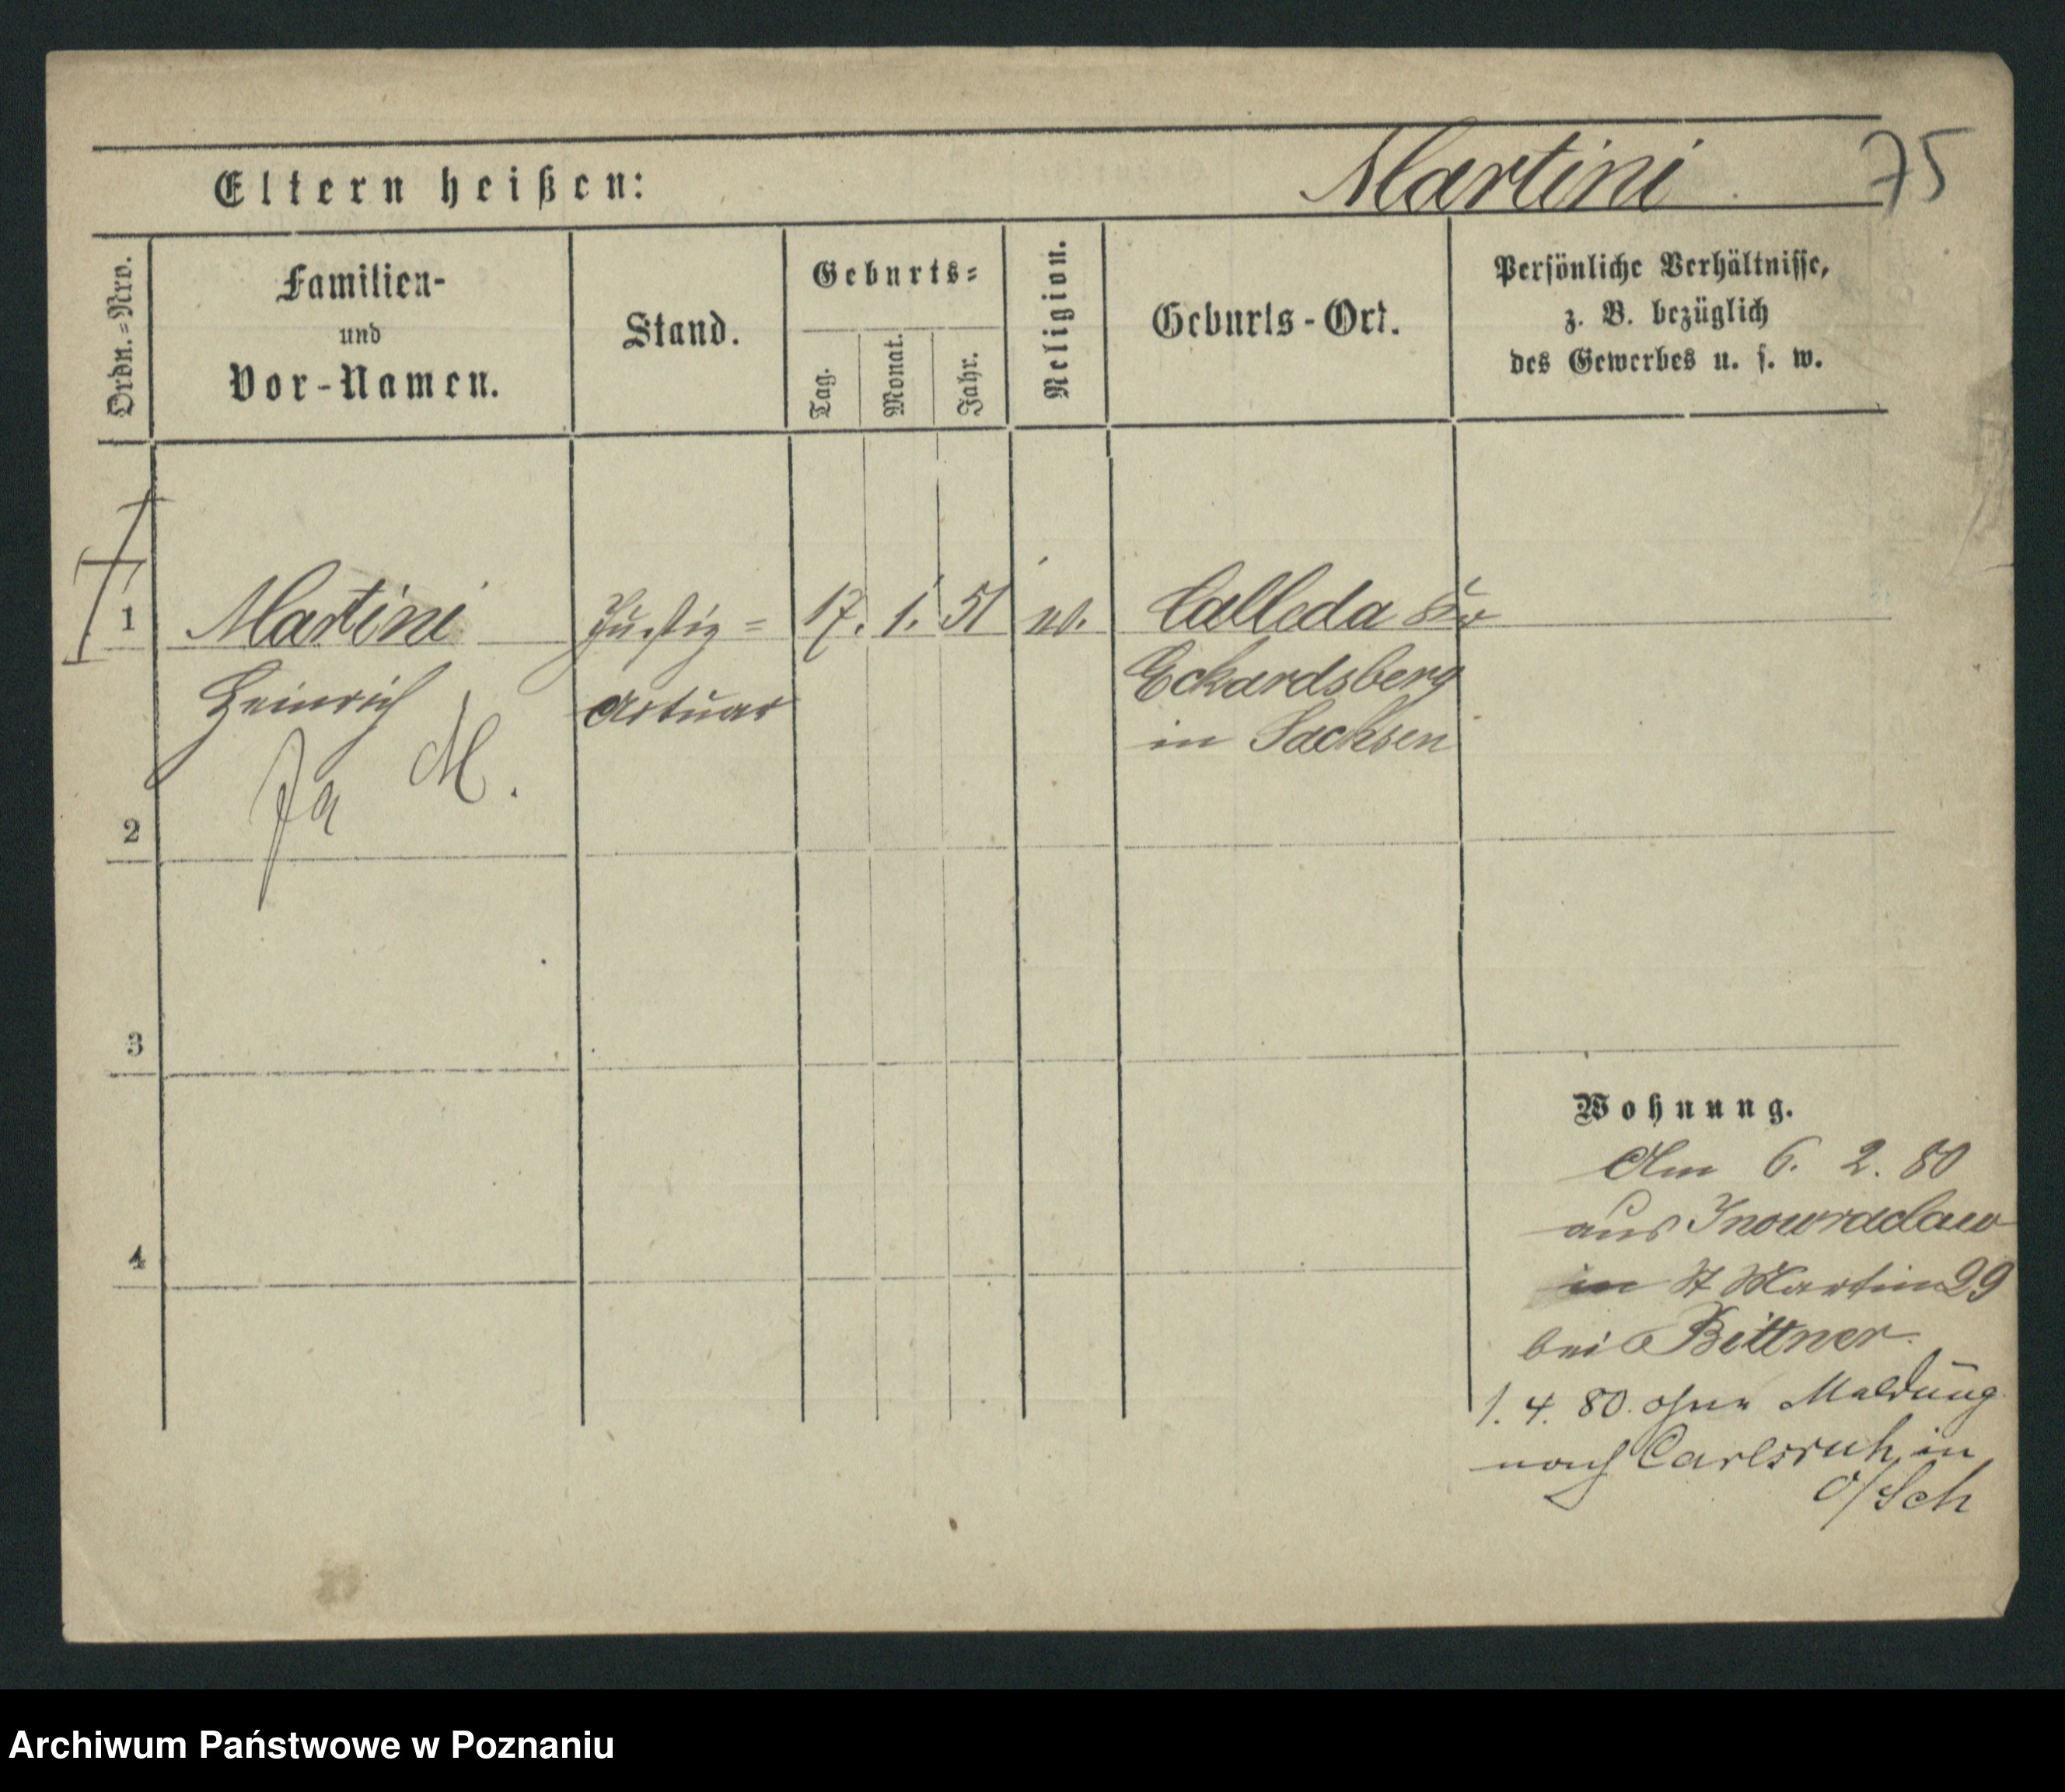 Martini 75
Eltern heißen:
Ordn.=Nro.
Familien-
und
Vor-Namen.
Stand.
Geburts=
Tag.
Monat.
Jahr.
Religion.
Geburts-Ort.
Persönliche Verhältnisse,
z. B. bezüglich
des Gewerbes u. s. w.
1 Martini Justiz= 17. 1. 51 ev. Colleda Kr
Heinrich Actuar Eckardsberg
in Sachsen
M.
2
3
4
Wohnung.
Am 6. 2. 80
aus Inowraclaw
in St Martin 29
bei Bittner.
1. 4. 80. ohne Meldung
nach Carlsruh in
O/Sch
Archiwum Państwowe w Poznaniu